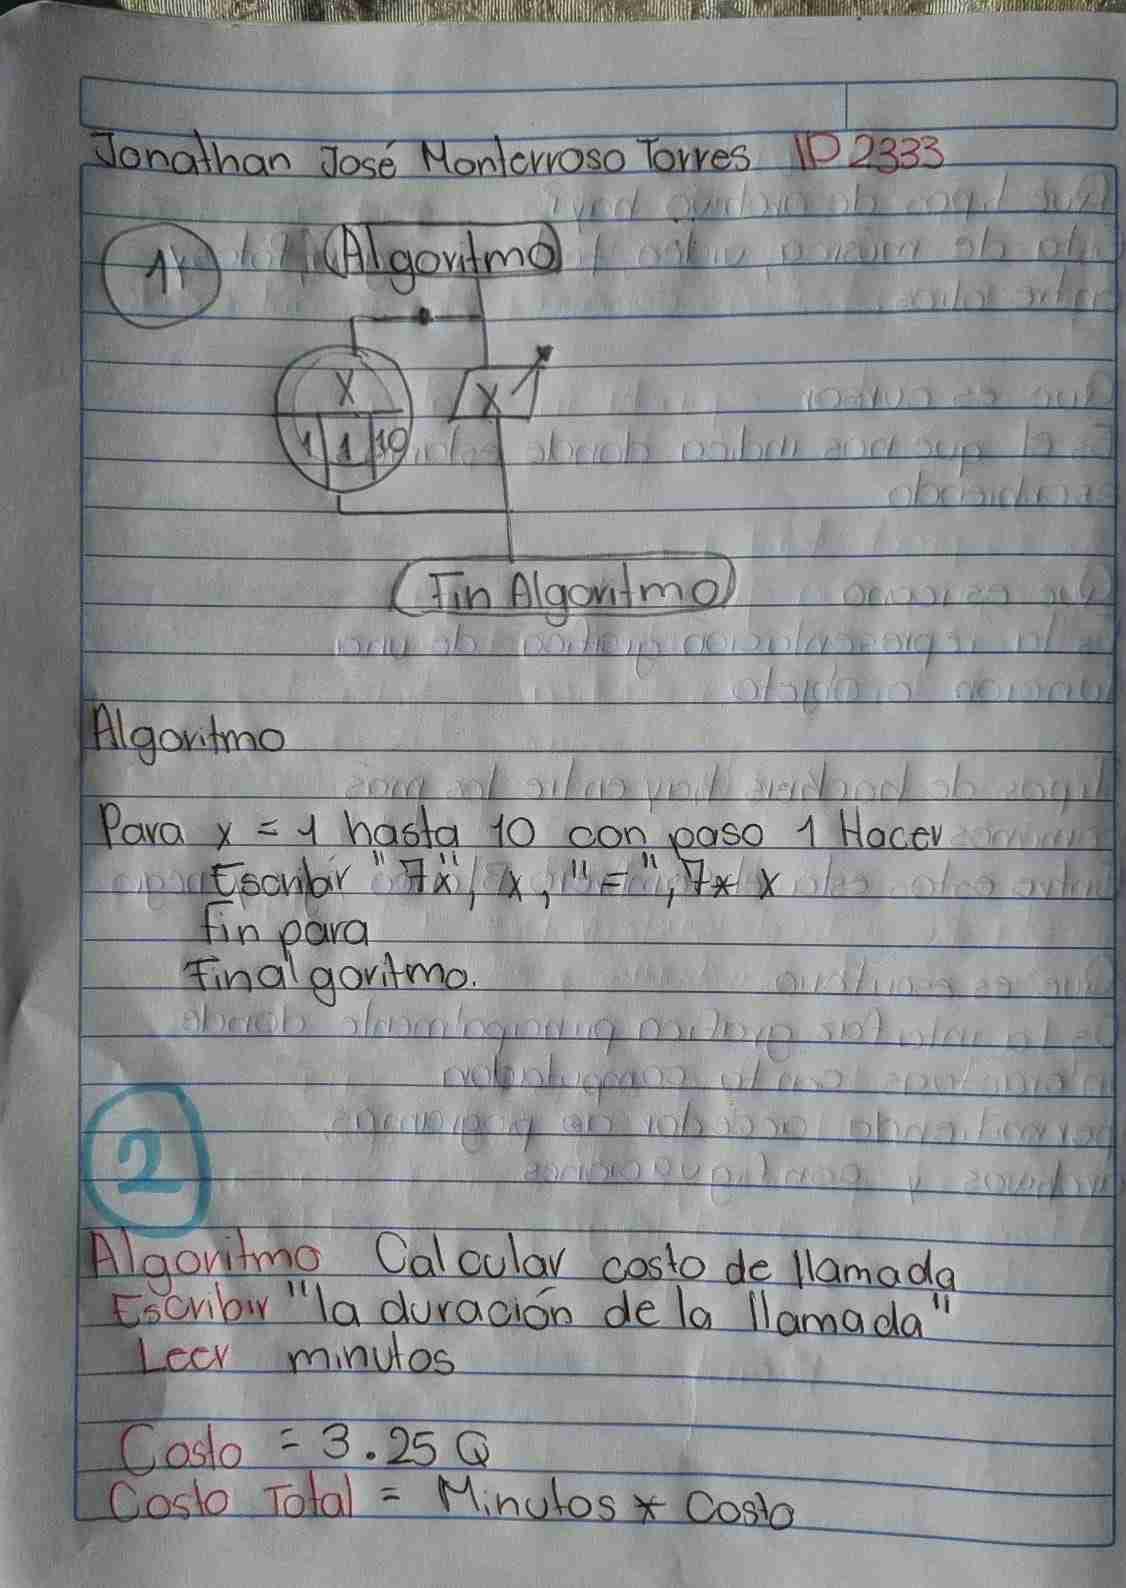 Jonathan José Monterroso Torres ID 2333
1)
Algoritmo
X
X
1 1 10
Fin Algoritmo
Algoritmo
Para x = 1 hasta 10 con paso 1 Hacer
Escribir "7x", x, "=", 7* x
fin para
Finalgoritmo.
2
Algoritmo Calcular costo de llamada
Escribir "la duración de la llamada"
Leer minutos
Costo = 3.25 Q
Costo Total = Minutos * Costo